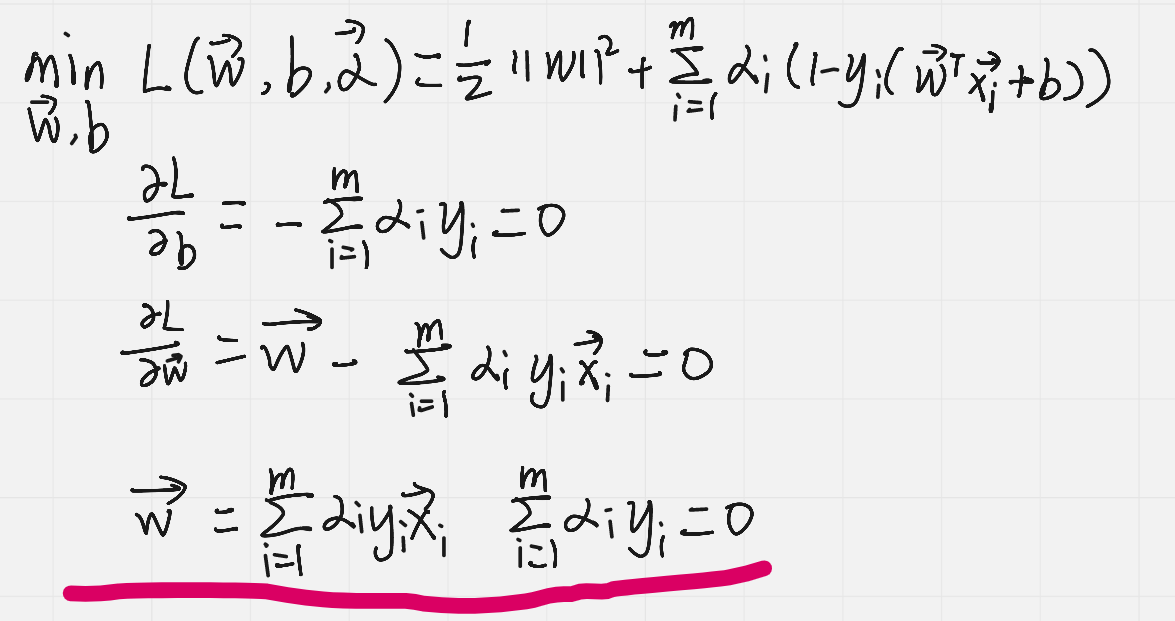 min L(w⃗, b, α⃗) = 1/2 ||w||² + Σ_{i=1}^{m} αᵢ (1 - yᵢ(w⃗ᵀx⃗ᵢ + b))
w⃗, b
∂L/∂b = - Σ_{i=1}^{m} αᵢ yᵢ = 0
∂L/∂w⃗ = w⃗ - Σ_{i=1}^{m} αᵢ yᵢ x⃗ᵢ = 0
w⃗ = Σ_{i=1}^{m} αᵢ yᵢ x⃗ᵢ Σ_{i=1}^{m} αᵢ yᵢ = 0